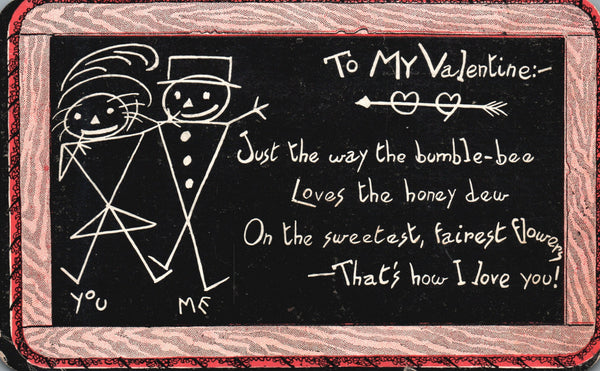 To My Valentine:-
Just the way the bumble-bee
Loves the honey dew
On the sweetest, fairest flowers
—That's how I love you!
YOU ME